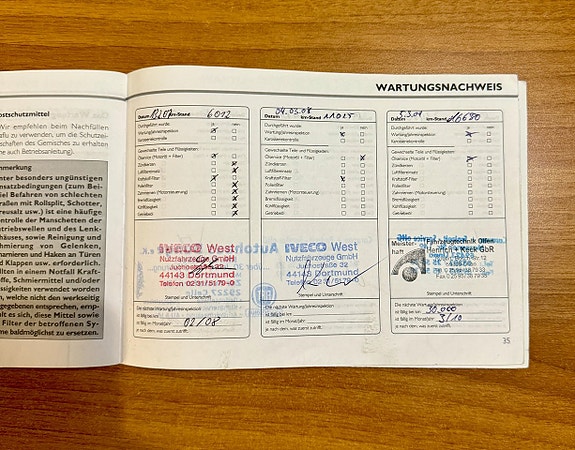 WARTUNGSNACHWEIS
ostschutzmittel
Wir empfehlen beim Nachfüllen
aflu zu verwenden, um die Schutzei-
schaften des Gemisches zu erhalten
he auch Betriebsanleitung).
merkung
nter besonders ungünstigen
nsatzbedingungen (zum Bei-
el Befahren von schlechten
raßen mit Rollsplit, Schotter,
reusalz usw.) ist eine häufige
ontrolle der Manschetten der
triebswellen und des Lenk-
häuses, sowie Reinigung und
hmierung von Gelenken,
harnieren und Haken an Türen
d Klappen usw. erforderlich.
llten in einem Notfall Kraft-
ffe, Schmiermittel und/oder
issigkeiten verwendet worden
n, welche nicht den werkseitig
gegebenen entsprechen, emp-
hlt es sich, diese Mittel sowie
Filter der betroffenen Sy-
me baldmöglichst zu ersetzen.
Datum km-Stand 6012
Durchgeführt wurde: ja nein
Wartung/Jahresinspektion
Karosseriekontrolle
Gewechselte Teile und Flüssigkeiten:
Ölservice (Motoröl + Filter)
Zündkerzen
Luftfiltereinsatz
Kraftstoff-Filter
Pollenfilter
Zahnriemen (Motorsteuerung)
Bremsflüssigkeit
Kühlflüssigkeit
Getriebeöl
IVECO West
Nutzfahrzeuge GmbH
Juchostraße 32
44143 Dortmund
Telefon 02 31/51 79-0
Stempel und Unterschrift
Die nächste Wartung/Jahresinspektion
ist fällig bei km
ist fällig im Monat/Jahr 02/08
je nach dem, was zuerst zutrifft.
04.03.08
Datum km-Stand 11025
Durchgeführt wurde: ja nein
Wartung/Jahresinspektion
Karosseriekontrolle
Gewechselte Teile und Flüssigkeiten:
Ölservice (Motoröl + Filter)
Zündkerzen
Luftfiltereinsatz
Kraftstoff-Filter
Pollenfilter
Zahnriemen (Motorsteuerung)
Bremsflüssigkeit
Kühlflüssigkeit
Getriebeöl
IVECO West
Nutzfahrzeuge GmbH
Juchostraße 32
44143 Dortmund
Telefon 02 31/51 79-0
Stempel und Unterschrift
Die nächste Wartung/Jahresinspektion
ist fällig bei km
ist fällig im Monat/Jahr
je nach dem, was zuerst zutrifft.
Datum km-Stand 16680
Durchgeführt wurde: ja nein
Wartung/Jahresinspektion
Karosseriekontrolle
Gewechselte Teile und Flüssigkeiten:
Ölservice (Motoröl + Filter)
Zündkerzen
Luftfiltereinsatz
Kraftstoff-Filter
Pollenfilter
Zahnriemen (Motorsteuerung)
Bremsflüssigkeit
Kühlflüssigkeit
Getriebeöl
Meister-
haft
Fahrzeugtechnik Olfen
Heinrich + Keck GbR
Stempel und Unterschrift
Die nächste Wartung/Jahresinspektion
ist fällig bei km 30.000
ist fällig im Monat/Jahr 3/10
je nach dem, was zuerst zutrifft.
35